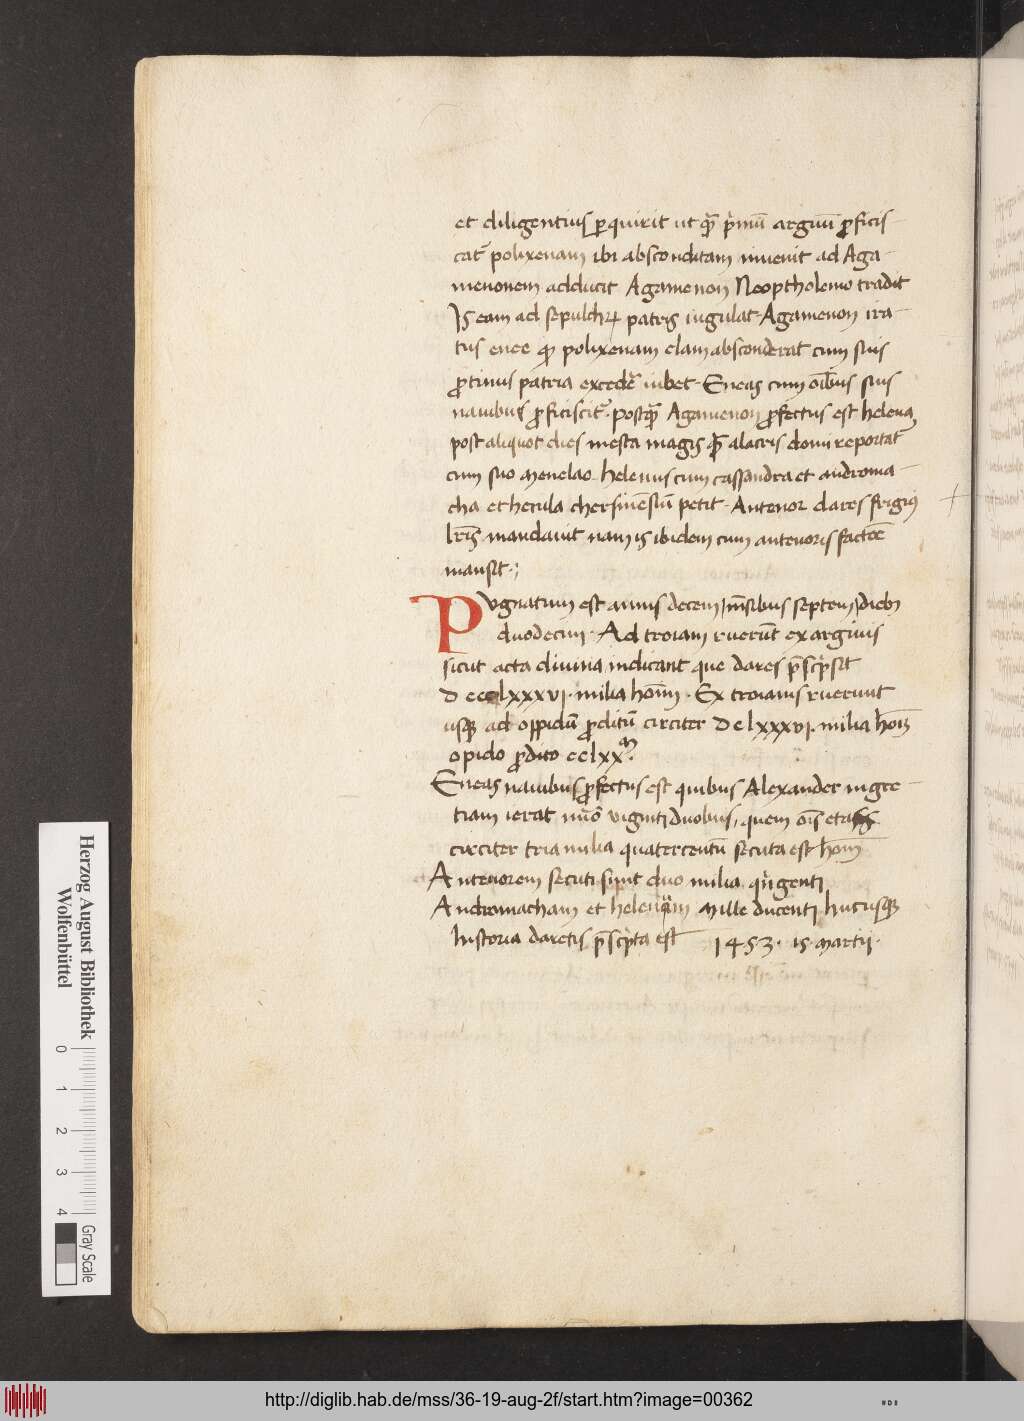 et diligentius ꝑquirit ut qᷓ pͥmū argiuū ꝓficis-
cat᷑ polixenam ibi absconditam inuenit ad Aga-
menonem adducit Agamenon Neoptholemo tradit
Is eam ad sepulchꝝ patris iugulat. Agamenon ira-
tus enee ꝙ polixenam clam absconderat cum suis
ꝓtinus patria excedē iubet. Eneas cum oībus suis
nauibus ꝓficiscit᷑. postqᷓ Agamenon ꝓfectus est helena
post aliquot dies mesta magis qᷓ alacris domū reportat᷑
cum suo Menelao. helenus cum cassandra et androma-
cha et hecula chersinēsiū petit. Antenor dares frigius
lr̄is mandauit nam is ibidem cum antenoris factōe
mansit.
Pvgnatum est annis decem mēsibus septem dieb;
duodecim. Ad troiam ruerūt ex argiuis
sicut acta diurna indicant que dares p̄scͥpsit
dccclxxxvi. milia hoīm. Ex troianis ruerunt
usqꝫ ad oppidū ꝓditū circiter dclxxxvi. milia hoīm
opido ꝓdito cclxxᵐ.
Eneas nauibus ꝓfectus est quibus Alexander in gre-
tiam ierat nūo viginti duobus, quem oīs etas
circiter tria milia quatercentū secuta est hoīm
Antenorem secuti sunt duo milia qͥngenti
Andromacham et helenum Mille ducenti hucusqꝫ
historia daretis p̄scͥpta est 1453. 15 Martii.
Herzog August Bibliothek
Wolfenbüttel
0 1 2 3 4
Gray Scale
http://diglib.hab.de/mss/36-19-aug-2f/start.htm?image=00362